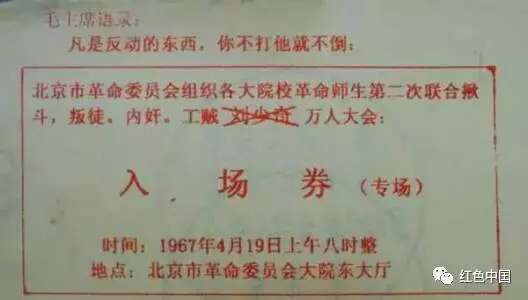 毛主席语录：
凡是反动的东西，你不打他就不倒：
北京市革命委员会组织各大院校革命师生第二次联合揪
斗，叛徒。内奸。工贼 刘少奇 万人大会：
入 场 券 （专场）
时间：1967年4月19日上午八时整
地点：北京市革命委员会大院东大厅
红色中国